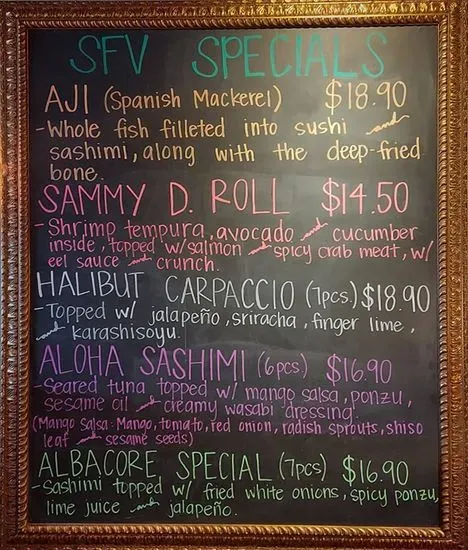 SFV SPECIALS
AJI (Spanish Mackerel) $18.90
-Whole fish filleted into sushi and
sashimi, along with the deep-fried
bone.
SAMMY D. ROLL $14.50
-Shrimp tempura, avocado and cucumber
inside, topped w/salmon and spicy crab meat, w/
eel sauce and crunch.
HALIBUT CARPACCIO (7pcs) $18.90
-Topped w/ jalapeño, sriracha, finger lime,
and karashisoyu.
ALOHA SASHIMI (6pcs) $16.90
-Seared tuna topped w/ mango salsa, ponzu,
sesame oil and creamy wasabi dressing.
(Mango Salsa: Mango, tomato, red onion, radish sprouts, shiso
leaf and sesame seeds)
ALBACORE SPECIAL (7pcs) $16.90
-Sashimi topped w/ fried white onions, spicy ponzu,
lime juice and jalapeño.